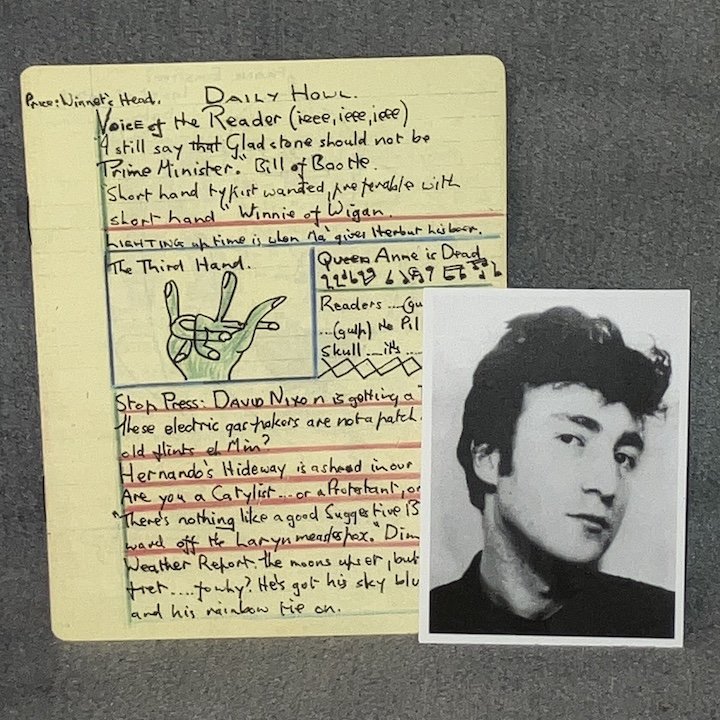 Price: Winner's Head.
DAILY HOWL.
Voice of the Reader (ieee, ieee, ieee)
"I still say that Gladstone should not be
Prime Minister." Bill of Bootle.
"Short hand typist wanted, preferable with
short hand" Winnie of Wigan.
LIGHTING up time is when Ma' gives Herbut his beer.
The Third Hand.
Queen Anne is Dead
Readers ....(gu
...(gulp) the Pil
Skull ... it's ...
Stop Press: DAVID NIXON is getting a
These electric gas pokers are not a patch
old flints eh Min?
Hernando's Hideway is ashead in our
Are you a Catylist... or a Protetant, or
"There's nothing like a good Suggestive B
ward off the Laryn measlespox." Dim
Weather Report. the moons upset, but
fret .... fowhy? He's got his sky blu
and his rainbow tie on.